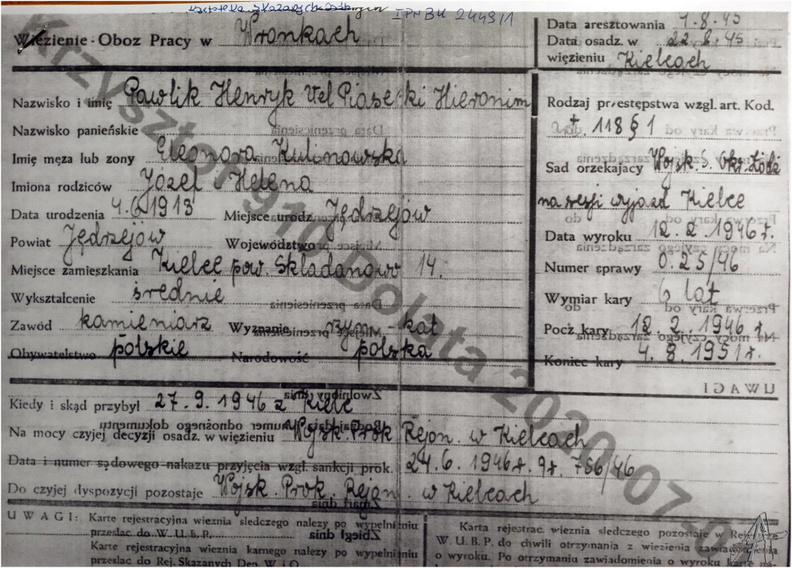 IPN BU 2449/1
Więzienie - Obóz Pracy w Wronkach
Nazwisko i imię Pawlik Henryk Vel Piasecki Hieronim
Nazwisko panieńskie
Imię męża lub żony Eleonora Kulinowska
Imiona rodziców Józef Helena
Data urodzenia 1913 Miejsce urodz. Jędrzejów
Powiat Jędrzejów Województwo
Miejsce zamieszkania Kielce pow. Składanowo 14.
Wykształcenie średnie
Zawód kamieniarz Wyznanie rzym-kat
Obywatelstwo polskie Narodowość polska
Data aresztowania 1.8.45
Data osadz. w 22.8.45
więzieniu Kielcach
Rodzaj przestępstwa wzgl. art. Kod.
118 § 1
Sąd orzekający Wojsk. S. Okr. Łódź
na sesji wyjazd Kielce
Data wyroku 12.2.1946r.
Numer sprawy 0.25/46
Wymiar kary 6 lat
Pocz. kary 12.2.1946 r.
Koniec kary 4.8.1951r.
UWAGI
Kiedy i skąd przybył 27.9.1946 z Kielc
Na mocy czyjej decyzji osadz. w więzieniu Wojsk. Prok Rejon. w Kielcach
Data i numer sądowego nakazu przyjęcia wzgl. sankcji prok. 24.6.1946r. 756/46
Do czyjej dyspozycji pozostaje Wojsk. Prok. Rejon. w Kielcach
UWAGI: Karte rejestracyjna wieznia sledczego nalezy po wypelnieniu
przeslac do W. U. B. P.
Karte rejestracyjna wieznia karnego nalezy po wypelnieniu
przeslac do Rej. Skazanych Dep. W i O.
Karta rejestrac. wieznia sledczego pozostaje w
W. U. B. P. do chwili otrzymania z wiezienia
o wyroku. Po otrzymaniu zawiadomienia o wyroku
krzysztof910 Dolata 2020-07-0